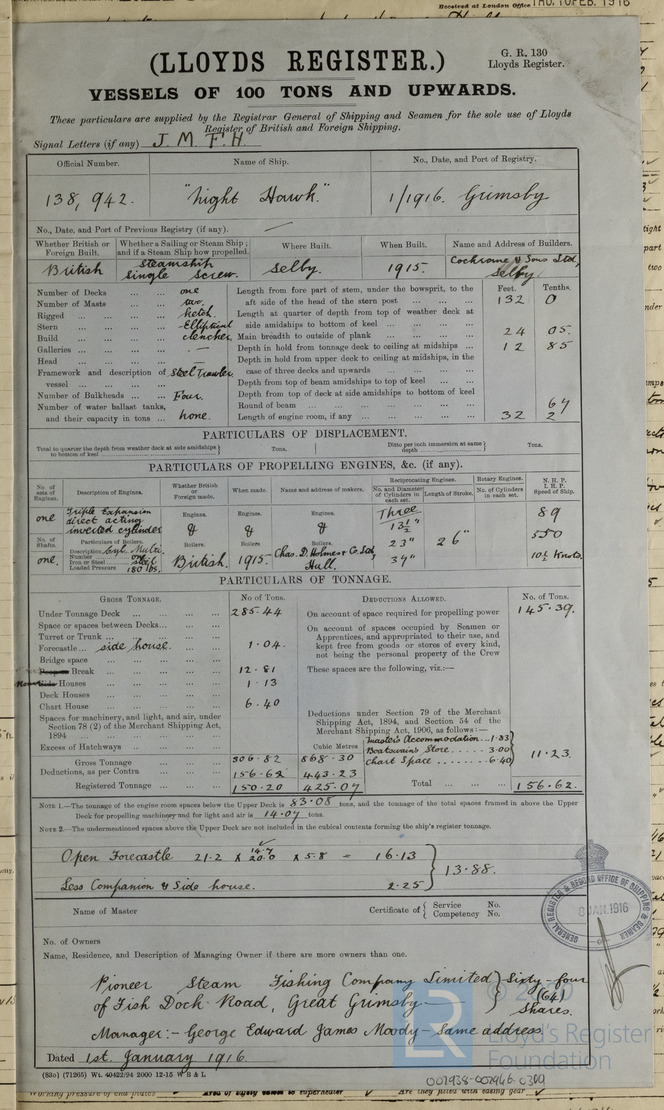 Received at London Office THU. 10 FEB. 1916
(LLOYDS REGISTER.)
G. R. 130
Lloyds Register.
VESSELS OF 100 TONS AND UPWARDS.
These particulars are supplied by the Registrar General of Shipping and Seamen for the sole use of Lloyds
Register of British and Foreign Shipping.
Signal Letters (if any) J M F H
Official Number. Name of Ship. No., Date, and Port of Registry.
138,942. "Night Hawk." 1/1916. Grimsby
No., Date, and Port of Previous Registry (if any). —
Whether British or Foreign Built. Whether a Sailing or Steam Ship; and if a Steam Ship how propelled. Where Built. When Built. Name and Address of Builders.
British Steamship Single Screw. Selby. 1915. Cochrane & Sons Ltd, Selby
Number of Decks ... ... one
Number of Masts ... ... two
Rigged ... ... ... Ketch.
Stern ... ... ... Elliptical
Build ... ... ... clencher
Galleries ... ... ... —
Head ... ... ... —
Framework and description of vessel ... ... ... Steel Trawler
Number of Bulkheads ... ... Four.
Number of water ballast tanks, and their capacity in tons ... none.
Feet. Tenths.
Length from fore part of stem, under the bowsprit, to the aft side of the head of the stern post ... 132 0
Length at quarter of depth from top of weather deck at side amidships to bottom of keel ...
Main breadth to outside of plank ... 24 05.
Depth in hold from tonnage deck to ceiling at midships ... 12 85
Depth in hold from upper deck to ceiling at midships, in the case of three decks and upwards ...
Depth from top of beam amidships to top of keel ...
Depth from top of deck at side amidships to bottom of keel
Round of beam ... 67
Length of engine room, if any ... 32 2
PARTICULARS OF DISPLACEMENT.
Total to quarter the depth from weather deck at side amidships to bottom of keel Tons. Ditto per inch immersion at same depth Tons.
PARTICULARS OF PROPELLING ENGINES, &c. (if any).
No. of sets of Engines. Description of Engines. Whether British or Foreign made. When made. Name and address of makers. Reciprocating Engines. No. and Diameter of Cylinders in each set. Length of Stroke. Rotary Engines. No. of Cylinders in each set. N. H. P. I. H. P. Speed of Ship.
one Triple Expansion direct acting inverted cylinder Engines. Engines. Engines. Three 13½" 89
No. of Shafts. Particulars of Boilers. & & & 23" 26" 550
one. Description Cyl. Multi. Number one Iron or Steel steel Loaded Pressure 180 lbs. Boilers. British. Boilers. 1915. Boilers. Chas. D. Holmes & Co. Ltd, Hull. 39" 10½ Knots.
PARTICULARS OF TONNAGE.
GROSS TONNAGE. No of Tons. DEDUCTIONS ALLOWED. No. of Tons.
Under Tonnage Deck ... ... 285.44
Space or spaces between Decks ... ...
Turret or Trunk ... ... ...
Forecastle ... side house. ... 1.04.
Bridge space ... ...
Break ... ... 12.81
Houses ... ... 1.13
Deck Houses ... ...
Chart House ... ... 6.40
Spaces for machinery, and light, and air, under Section 78 (2) of the Merchant Shipping Act, 1894 ... ...
Excess of Hatchways ... ...
Cubic Metres
Gross Tonnage ... 306.82 868.30
Deductions, as per Contra ... 156.62 443.23
Registered Tonnage ... 150.20 425.07
On account of space required for propelling power 145.39.
On account of spaces occupied by Seamen or Apprentices, and appropriated to their use, and kept free from goods or stores of every kind, not being the personal property of the Crew
These spaces are the following, viz.:—
Deductions under Section 79 of the Merchant Shipping Act, 1894, and Section 54 of the Merchant Shipping Act, 1906, as follows:—
Masters Accommodation ... 1.83
Boatswains Store ... 3.00
Chart Space ... 6.40
11.23.
Total ... ... 156.62.
NOTE 1.—The tonnage of the engine room spaces below the Upper Deck is 83.08 tons, and the tonnage of the total spaces framed in above the Upper
Deck for propelling machinery and for light and air is 14.07 tons.
NOTE 2.—The undermentioned spaces above the Upper Deck are not included in the cubical contents forming the ship's register tonnage.
Open Forecastle 21.2 x 14.7 20.0 x 5.8 = 16.13
Less Companion & Side house. 2.25
13.88.
GENERAL REGISTER & RECORD OFFICE OF SHIPPING &
JAN. 1916
Name of Master Certificate of Service No. Competency No.
No. of Owners
Name, Residence, and Description of Managing Owner if there are more owners than one.
Pioneer Steam Fishing Company Limited Sixty-four
of Fish Dock Road, Great Grimsby— (64)
Shares.
Manager:- George Edward James Moody - same address.
© 2020
LR Lloyd's Register
Foundation
Dated 1st. January 1916.
(83o) (71265) Wt. 40422/94 2000 12-15 W B & L
002938-002946-0300
Working pressure of
Area of safety valves to superheater
Are they fitted with easing gear